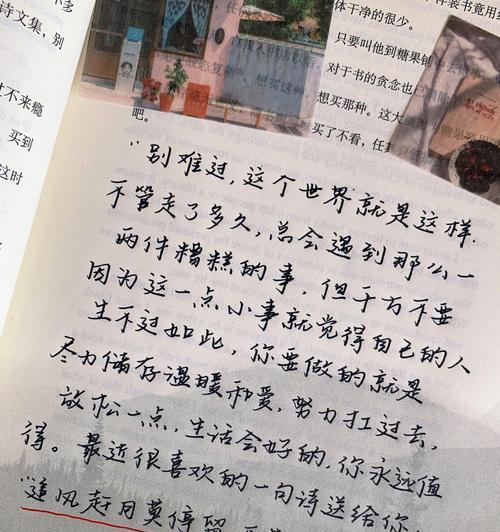 诗文集，别
买到
这时
体干净的很少。
只要叫他到糖果铺
对于书的贪念也
想买那种。这大
买了不看，任其
吧。
"别难过，这个世界就是这样.
不管走了多久，总会遇到那么一
两件糟糕的事，但千万不要
因为这一点小事就觉得自己的人
生不过如此，你要做的就是
尽力储存温暖和爱，努力扛过去，
放松一点，生活会好的，你永远值
得。最近很喜欢的一句诗送给你
"追风赶月莫停留